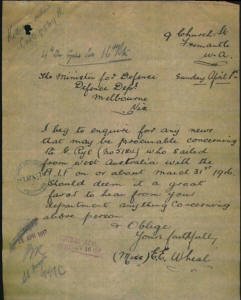 9 Church St
Fremantle
W.A.
Sunday April 1st
The Minister for Defence
Defence Dept
Melbourne
Vic
I beg to enquire for any news
that may be procurable concerning
who sailed
from West Australia with the
A.I.F on or about March 31st 1916.
I should deem it a great
favor to hear from your
department anything concerning
above person
& Oblige
Yours faithfully
(Miss) E. E. Wheal